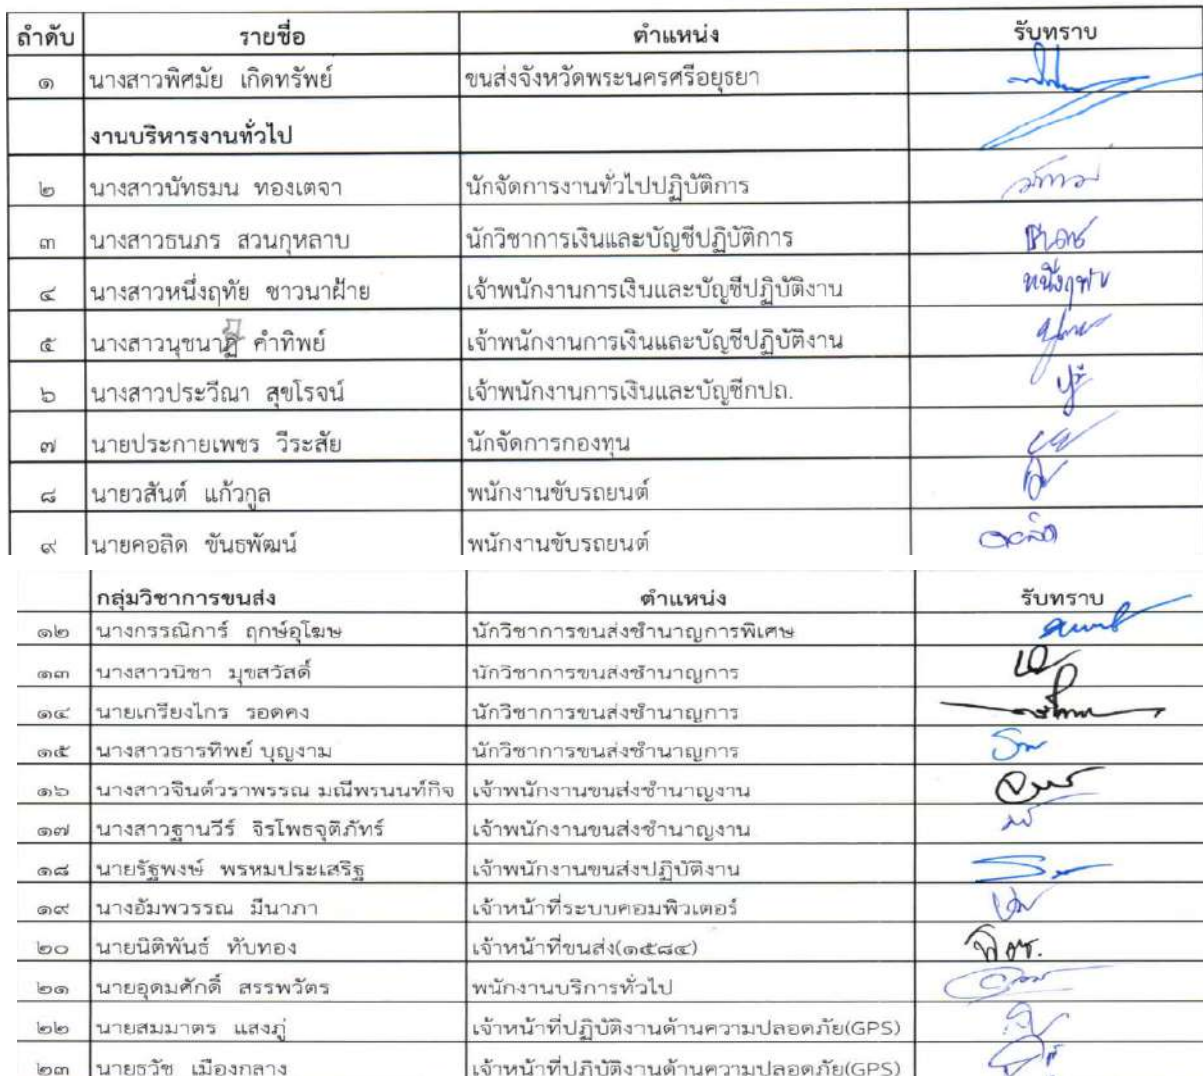 ลำดับ รายชื่อ ตำแหน่ง รับทราบ
๑ นางสาวพิศมัย เกิดทรัพย์ ขนส่งจังหวัดพระนครศรีอยุธยา
งานบริหารงานทั่วไป
๒ นางสาวนัทธมน ทองเตจา นักจัดการงานทั่วไปปฏิบัติการ
๓ นางสาวธนภร สวนกุหลาบ นักวิชาการเงินและบัญชีปฏิบัติการ
๔ นางสาวหนึ่งฤทัย ชาวนาฝ้าย เจ้าพนักงานการเงินและบัญชีปฏิบัติงาน
๕ นางสาวนุชนาฏ คำทิพย์ เจ้าพนักงานการเงินและบัญชีปฏิบัติงาน
๖ นางสาวประวีณา สุขโรจน์ เจ้าพนักงานการเงินและบัญชีกปถ.
๗ นายประกายเพชร วีระสัย นักจัดการกองทุน
๘ นายวสันต์ แก้วกูล พนักงานขับรถยนต์
๙ นายคอลิด ขันธพัฒน์ พนักงานขับรถยนต์
กลุ่มวิชาการขนส่ง ตำแหน่ง รับทราบ
๑๒ นางกรรณิการ์ ฤกษ์อุโฆษ นักวิชาการขนส่งชำนาญการพิเศษ
๑๓ นางสาวนิชา มุขสวัสดิ์ นักวิชาการขนส่งชำนาญการ
๑๔ นายเกรียงไกร รอดคง นักวิชาการขนส่งชำนาญการ
๑๕ นางสาวธารทิพย์ บุญงาม นักวิชาการขนส่งชำนาญการ
๑๖ นางสาวจินต์วราพรรณ มณีพรนนท์กิจ เจ้าพนักงานขนส่งชำนาญงาน
๑๗ นางสาวฐานวีร์ จิรโพธจุติภัทร์ เจ้าพนักงานขนส่งชำนาญงาน
๑๘ นายรัฐพงษ์ พรหมประเสริฐ เจ้าพนักงานขนส่งปฏิบัติงาน
๑๙ นางอัมพวรรณ มีนาภา เจ้าหน้าที่ระบบคอมพิวเตอร์
๒๐ นายนิติพันธ์ ทับทอง เจ้าหน้าที่ขนส่ง(๑๕๘๔)
๒๑ นายอุดมศักดิ์ สรรพวัตร พนักงานบริการทั่วไป
๒๒ นายสมมาตร แสงภู่ เจ้าหน้าที่ปฏิบัติงานด้านความปลอดภัย(GPS)
๒๓ นายธวัช เมืองกลาง เจ้าหน้าที่ปฏิบัติงานด้านความปลอดภัย(GPS)